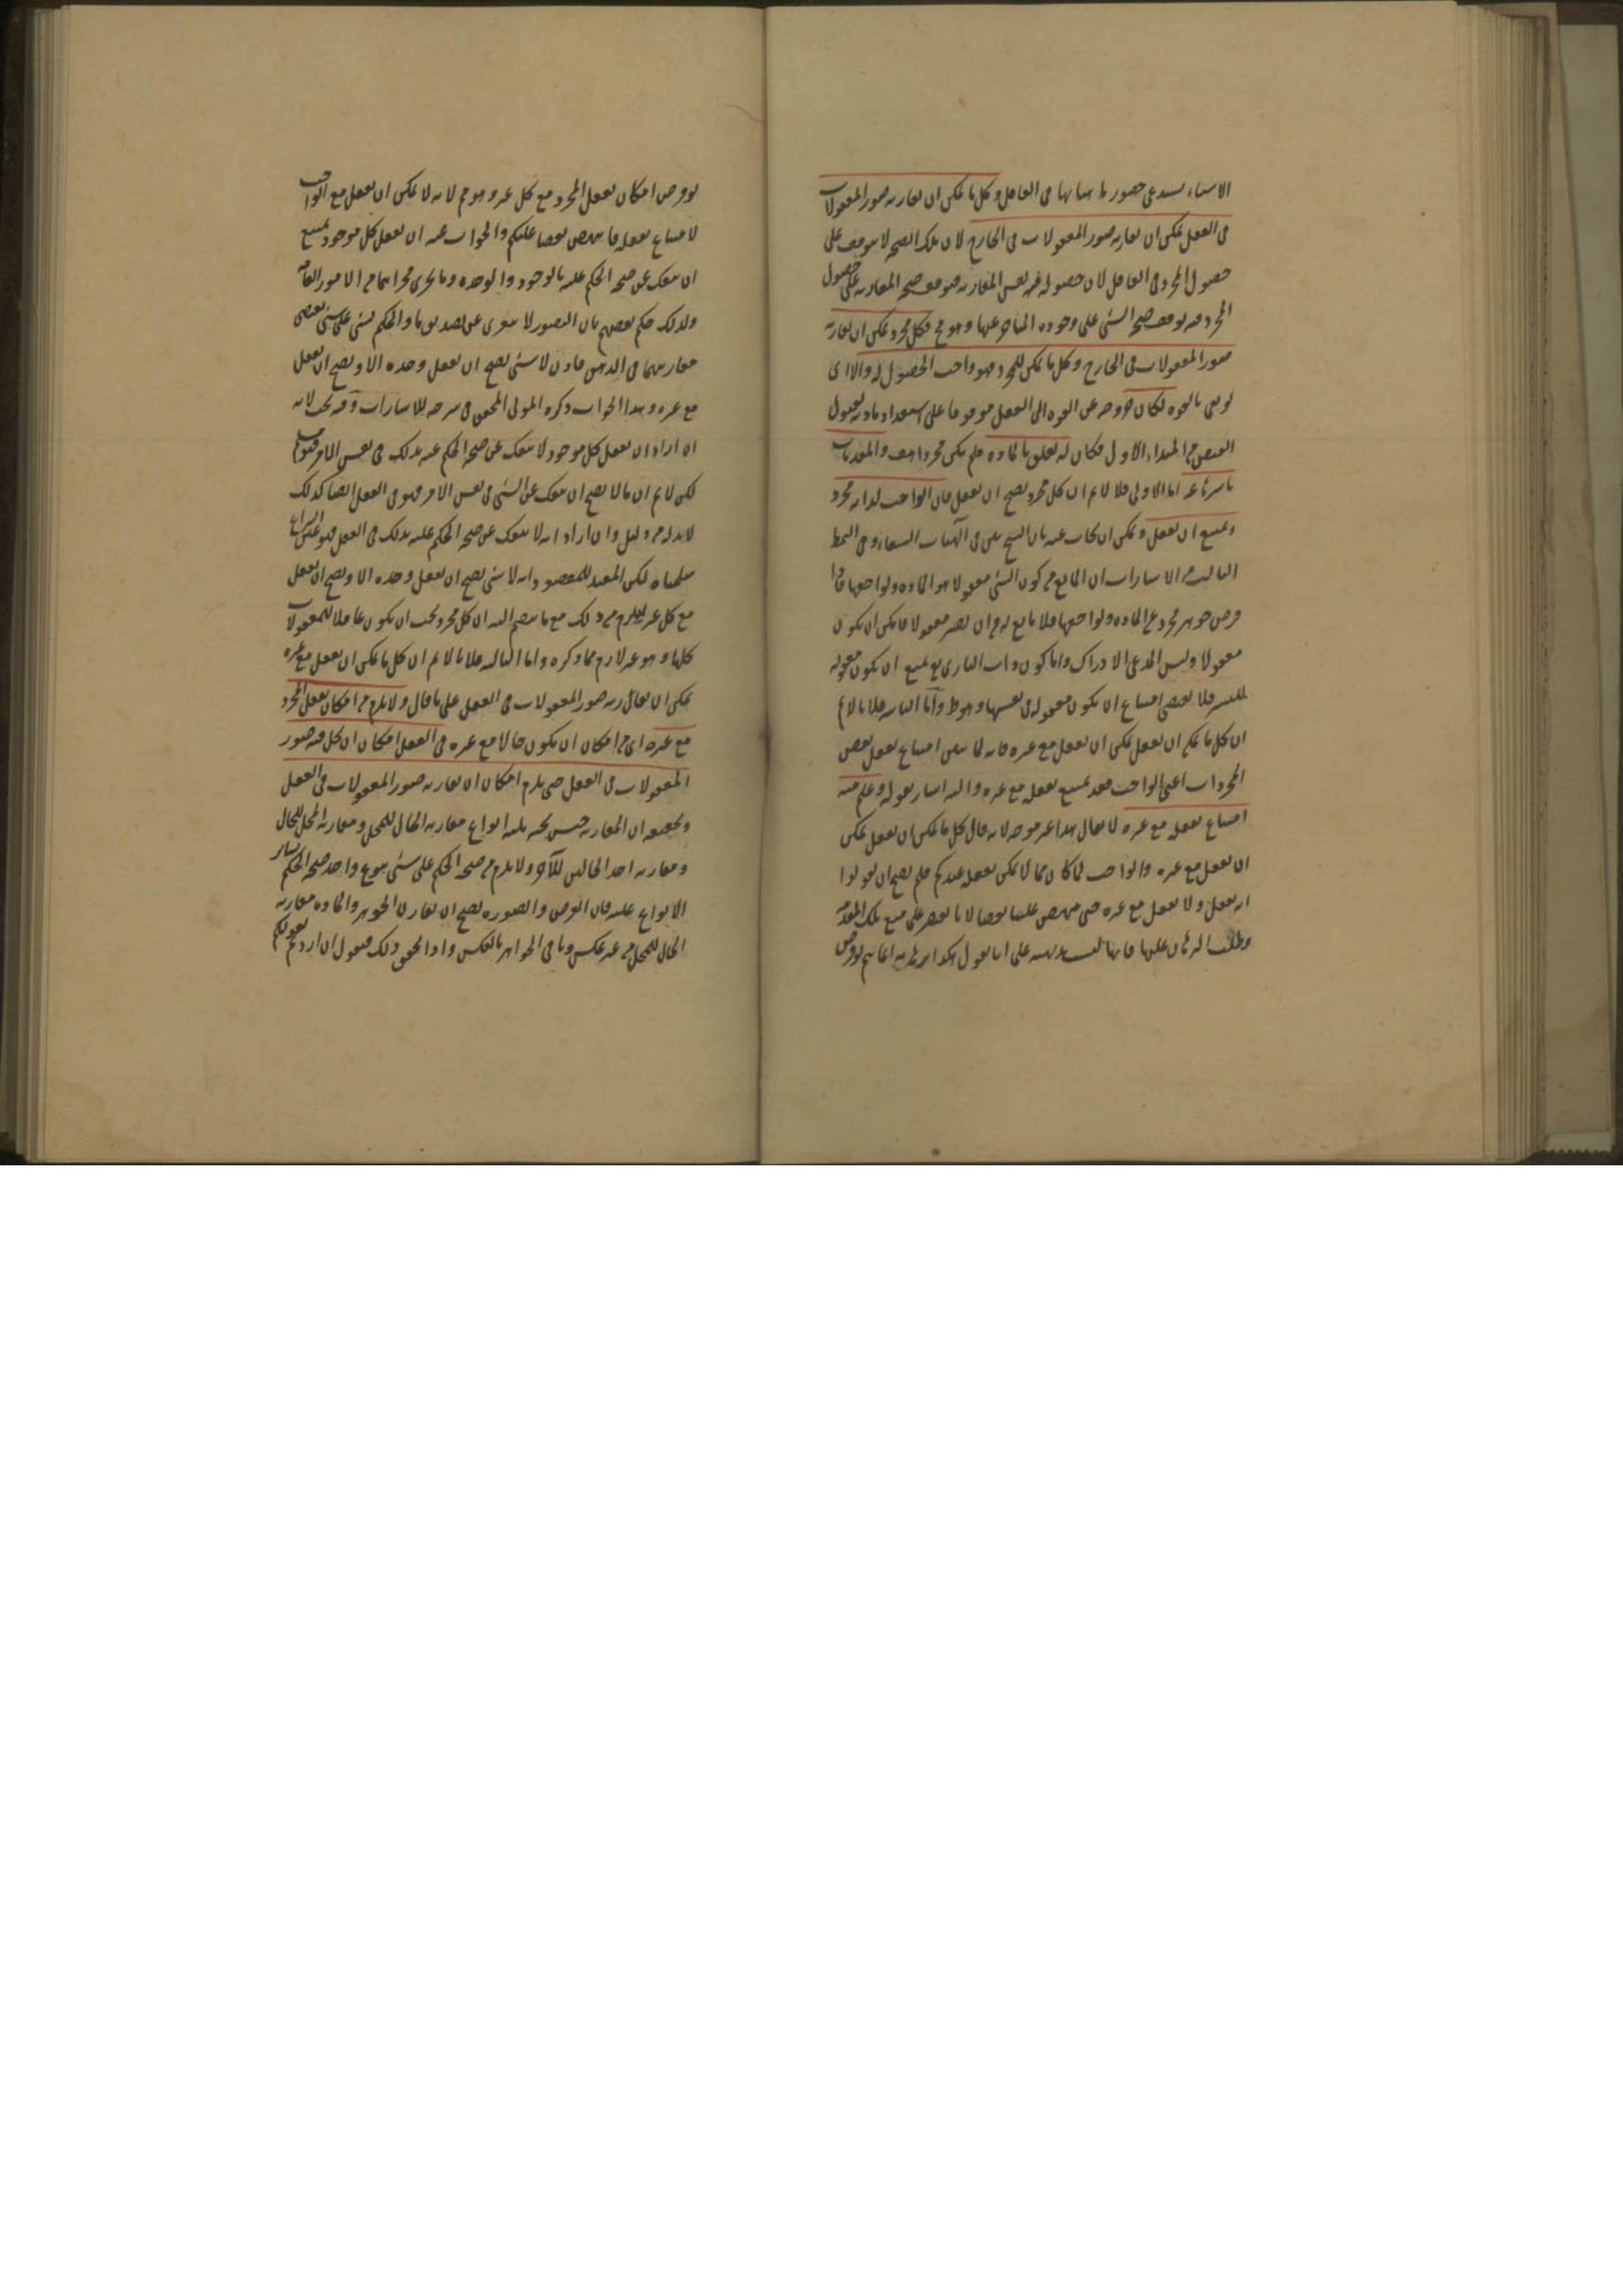 الاشياء يستدعى حضور ماهياتها فى العاقل وكل ما يمكن ان يقارنه صور المعقولات
فى العقل يمكن ان يقارنه صور المعقولات فى الخارج لان تلك الصحة لا يتوقف على
حصول المجرد فى العاقل لان حصوله فيه نفس المقارنة فتوقف صحة المقارنة على حصول
المجرد فيه توقف صحة الشئ على وجوده المتاخر عنها وهو مح فكل مجرد يمكن ان يقارنه
صور المعقولات فى الخارج وكل ما يمكن للمجرد فهو واجب الحصول له والا اى
لو بقى بالقوة لكان خروجه من القوة الى الفعل موقوفا على استعداد مادته لقبول
الفيض من المبداء الاول فكان له تعلق بالمادة فلم يكن مجردا هف والمقدمات
باسرها مم اما الاولى فلا لانم ان كل مجرد يصح ان يعقل فان الواجب لذاته مجرد
ويمتنع ان يعقل ويمكن ان يجاب عنه بان الشيخ بين فى الهيات الشفاء وفى النمط
الثالث من الاشارات ان المانع من كون الشئ معقولا هو المادة ولواحقها فاذا
فرض جوهر مجرد عن المادة ولواحقها فلا مانع له من ان يصير معقولا فامكن ان يكون
معقولا وليس المدعى الا ذلك واما كون ذات البارى تع يمتنع ان يكون معقولة
للبشر فلا يقتضى امتناع ان يكون معقولة فى نفسها وهو ط واما الثانية فلانا لانم
ان كل ما يمكن ان يعقل يمكن ان يعقل مع غيره فانه لما بين امتناع تعقل بعض
المجردات اعنى الواجب فقد يمتنع تعقله مع غيره واليه اشار بقوله وعلم منه
امتناع تعقله مع غيره لا يقال هذا غير موجه لانه قال كل ما يمكن ان يعقل يمكن
ان يعقل مع غيره والواجب لما كان مما لا يمكن تعقله عندكم فلم يصح ان تقولوا
انه يعقل ولا يعقل مع غيره حتى ينهض علينا نقضا لانا نقتصر على منع تلك المقدمة
وطلب البرهان عليها فانها ليست بديهية على انا نقول هكذا برهانه انما يتم لو فرض
لو فرض امكان تعقل المجرد مع كل غير وهو مم لانه لا يمكن ان يعقل مع الواجب
لامتناع تعقله فانتهض نقضا عليكم والجواب عنه ان تعقل كل موجود يمتنع
ان ينفك عن صحة الحكم عليه بالوجود والوحدة وما يجرى مجراهما من الامور العامة
ولذلك حكم بعضهم بان التصور لا يتعرى عن تصديق ما والحكم بشئ على شئ يقتضى
مقارنتهما فى الذهن فاذن لا شئ يصح ان يعقل وحده الا ويصح ان يعقل
مع غيره وهذا الجواب ذكره المولى المحقق فى شرحه للاشارات وفيه بحث لانه
ان اراد ان تعقل كل موجود لا ينفك عن صحة الحكم عليه بذلك فى نفس الامر فهو مسلم
لكن لانم ان ما لا يصح ان ينفك عن الشئ فى نفس الامر فهو فى العقل ايضا كذلك
لابد له من دليل وان اراد انه لا ينفك عن صحة الحكم عليه بذلك فى العقل فهو عين النزاع
سلمناه لكن المفيد للمقصود انه لا شئ يصح ان يعقل وحده الا ويصح ان يعقل
مع كل غير ليلزم من ذلك مع ما يضم اليه ان كل مجرد يجب ان يكون عاقلا للمعقولات
كلها وهو غير لازم مما ذكره واما الثالثة فلانا لانم ان كل ما يمكن ان يعقل مع غيره
يمكن ان يقارنه صور المعقولات فى العقل على ما قال ولا يلزم من امكان تعقل المجرد
مع غيره اى من امكان ان يكون حالا مع غيره فى العقل امكان ان يحل فيه صور
المعقولات فى العقل حتى يلزم امكان ان يقارنه صور المعقولات فى العقل
وتحقيقه ان المقارنة جنس تحته ثلثة انواع مقارنة الحال للمحل ومقارنة المحل للحال
ومقارنة احد الحالين للآخر ولا يلزم من صحة الحكم على شئ بنوع واحد صحة الحكم بسائر
الانواع عليه فان العرض والصورة يصح ان يقارن الجوهر والمادة مقارنة
الحال للمحل من غير عكس وباقى الجواهر بالعكس واذا تحقق ذلك فنقول ان اردتم بقولكم